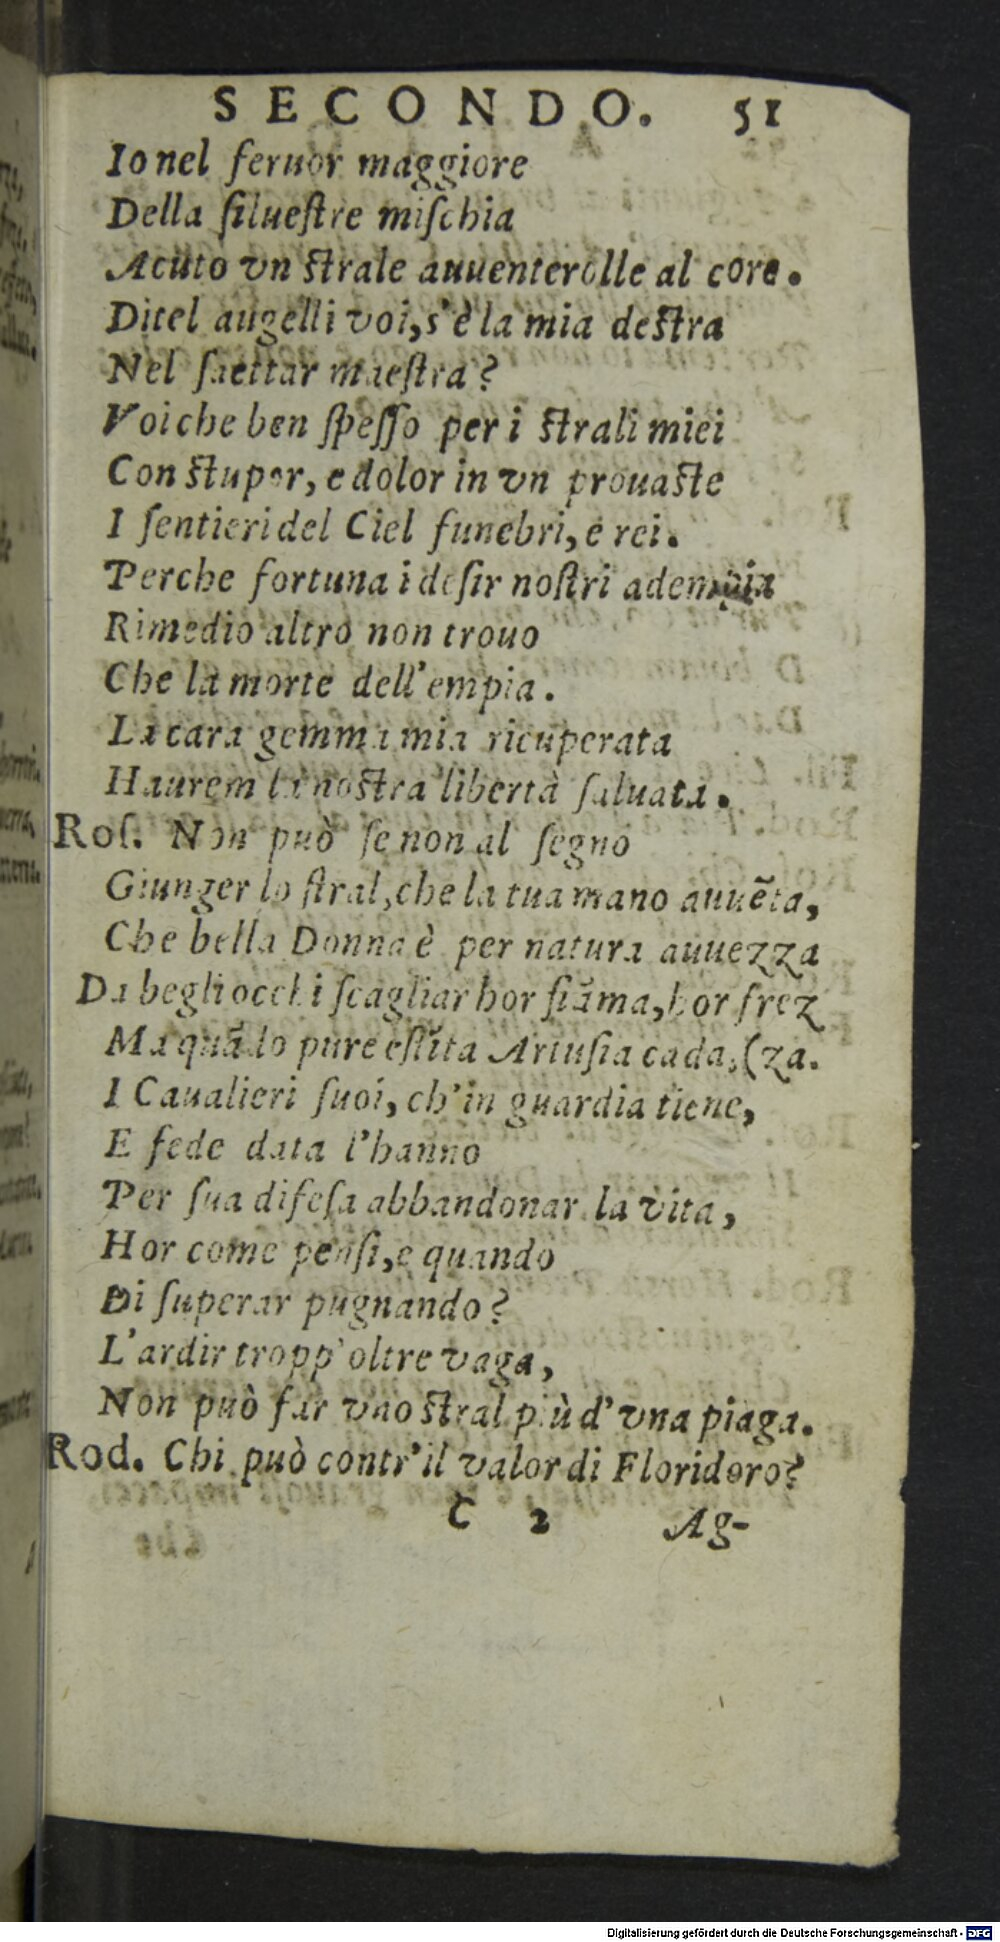 SECONDO. 51
Io nel feruor maggiore
Della ſilueſtre miſchia
Acuto vn ſtrale auuenterolle al core.
Ditel augelli voi, s'è la mia deſtra
Nel ſaettar maeſtra?
Voi che ben ſpeſſo per i ſtrali miei
Con ſtupor, e dolor in vn prouaſte
I ſentieri del Ciel funebri, e rei.
Perche fortuna i deſir noſtri adempia
Rimedio altro non trouo
Che la morte dell'empia.
La cara gemma mia ricuperata
Haurem la noſtra libertà ſaluata.
Roſ. Non può ſe non al ſegno
Giunger lo ſtral, che la tua mano auuẽta,
Che bella Donna è per natura auuezza
Da begli occhi ſcagliar hor fiãma, hor frez
Ma quãdo pure eſtĩta Artuſia cada, (za.
I Caualieri ſuoi, ch'in guardia tiene,
E fede data l'hanno
Per ſua difeſa abbandonar la vita,
Hor come penſi, e quando
Di ſuperar pugnando?
L'ardir tropp'oltre vaga,
Non può far vno ſtral più d'vna piaga.
Rod. Chi può contr'il valor di Floridoro?
C 2 Ag-
Digitalisierung gefördert durch die Deutsche Forschungsgemeinschaft - DFG